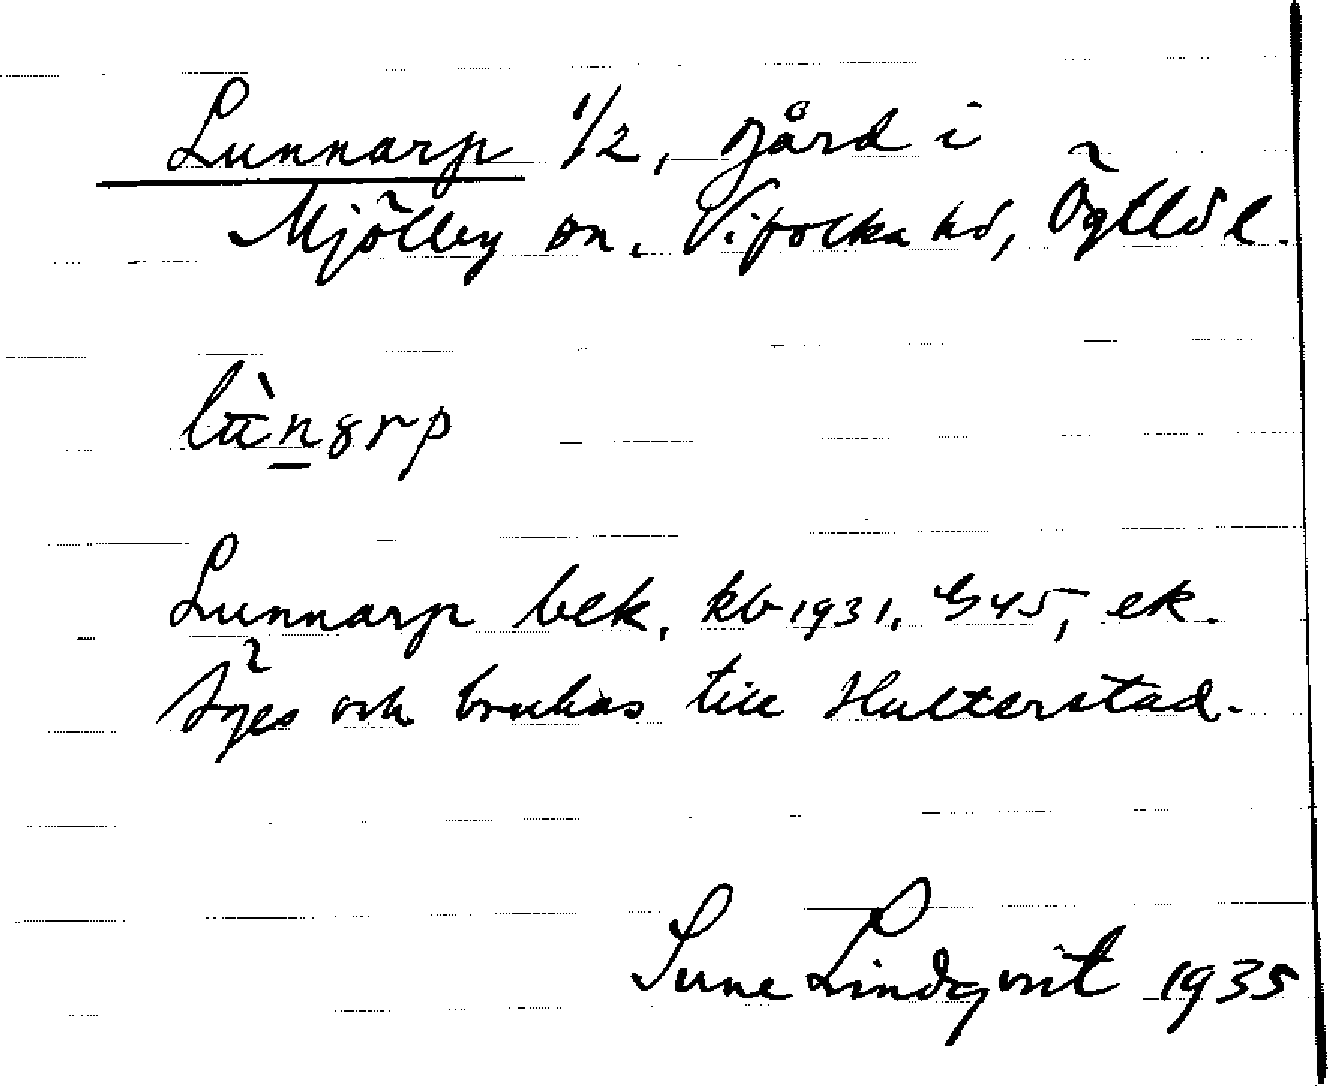 Lunnarp 1/2, gård i
Mjölby sn, Vifolka hd, Ög
Lunnarp bek, kb 1931, G45, ek.
Äges och brukas till Hulterstad.
Sune Lindqvist 1935